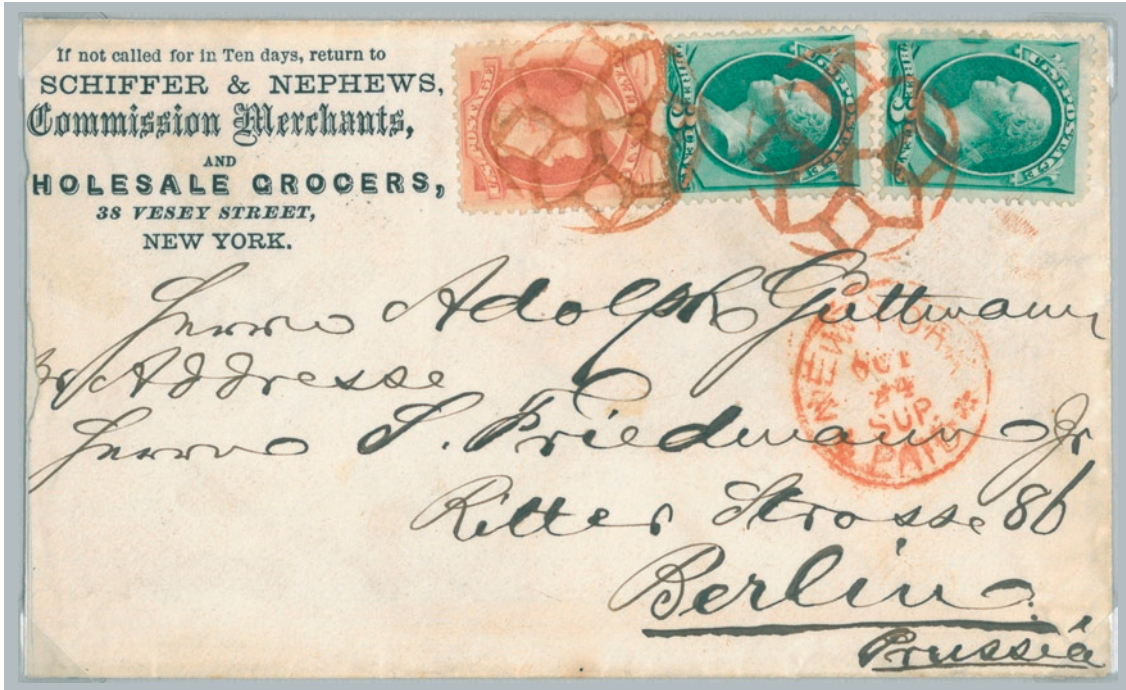 If not called for in Ten days, return to
SCHIFFER & NEPHEWS,
Commission Merchants,
AND
HOLESALE GROCERS,
38 VESEY STREET,
NEW YORK.
U.S. POSTAGE
U.S. POSTAGE
3
Herrn Adolph Guttmann
Addresse
Herrn S. Friedmann Jr
Ritter Strasse 86
Berlin
Prussia
NEW YORK
OCT
24
SUP.
PAID